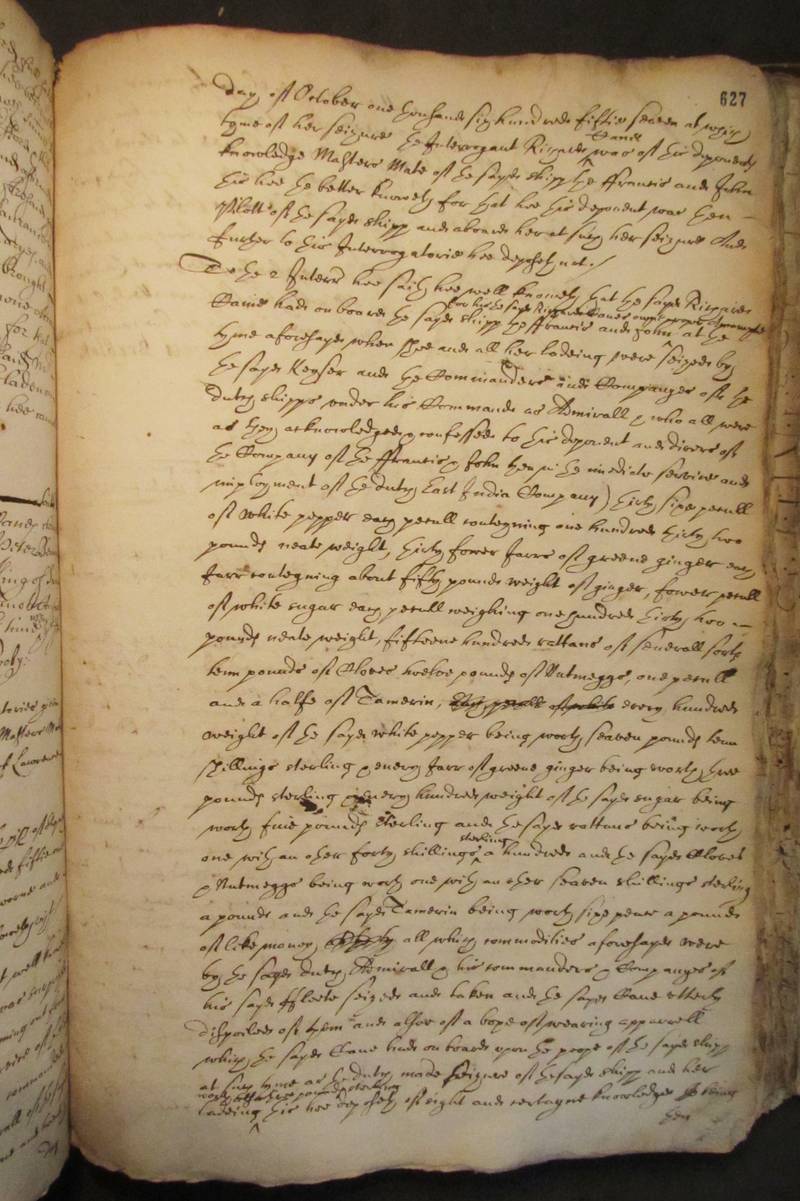 627
day of October one thousand six hundred fiftie seaven at which
tyme of her seizure the Interrogant Richard Cane was of this deponents
knowledge Masters Mate of the sayd shipp the ffrancis and John
this hee the better knoweth for that hee this deponent was then
Pilott of the sayd shipp and aboard her at such her seizure And
further to this Interrogatorie hee deposeth not./
To the 2 Interr hee saith hee well knoweth that the sayd Richard
Cane had on board the sayd shipp the ffrancis and John at the
for his the sayd Richard Canes owne proper Accompt
tyme aforesayd when shee and all her ladeing were seized by
the sayd Keyser and the Commanders and Companyes of the
dutch shipps under his Command as Admirall (who all were
as they acknowledged & confessed to this deponent and divers of
the Company of the ffrancis & John then in the imediate service and
imployment of the dutch East India Company) thirty sixe pecull
of white pepper each pecull conteyning one hundred thirty two
pounds neate weight, thirty fower Jarrs of greene ginger each
Jarr conteyning about fifty pounds weight of ginger, fower pecull
of white sugar each pecull weighing one hundred thirty two
pounds neate weight, fifteene hundred rattans of severall sorts
tenn pounds of Cloves twelve pounds of Nutmeggs, one pecull
and a halfe of Tamerin, every hundred
weight of the sayd white pepper being worth seaven pounds tenn
shillings sterling & every Jarr of greene ginger being worth three
pounds sterling & every hundred weight of the sayd sugar being
worth five pounds sterling and the sayd rattans being worth
one with an other forty shillings sterling a hundred and the sayd Cloves
& Nutmeggs being worth one with an other seaven shillings sterling
a pound and the sayd Tamerin being worth sixe pence a pound
of like money, all which commodities aforesayd were
by the sayd dutch Admirall & his commanders & Companyes of
his sayd ffleete seized and taken and the sayd Cane utterly
dispoiled of them and alsoe of a boxe of wearing apparrell
which the sayd Cane had on board upon the poope of the sayd shipp
at such tyme as the dutch made seizure of the sayd shipp and her
worth betweene pounds sterling
ladeing this hee deposeth of right and certayne knowledge being
then